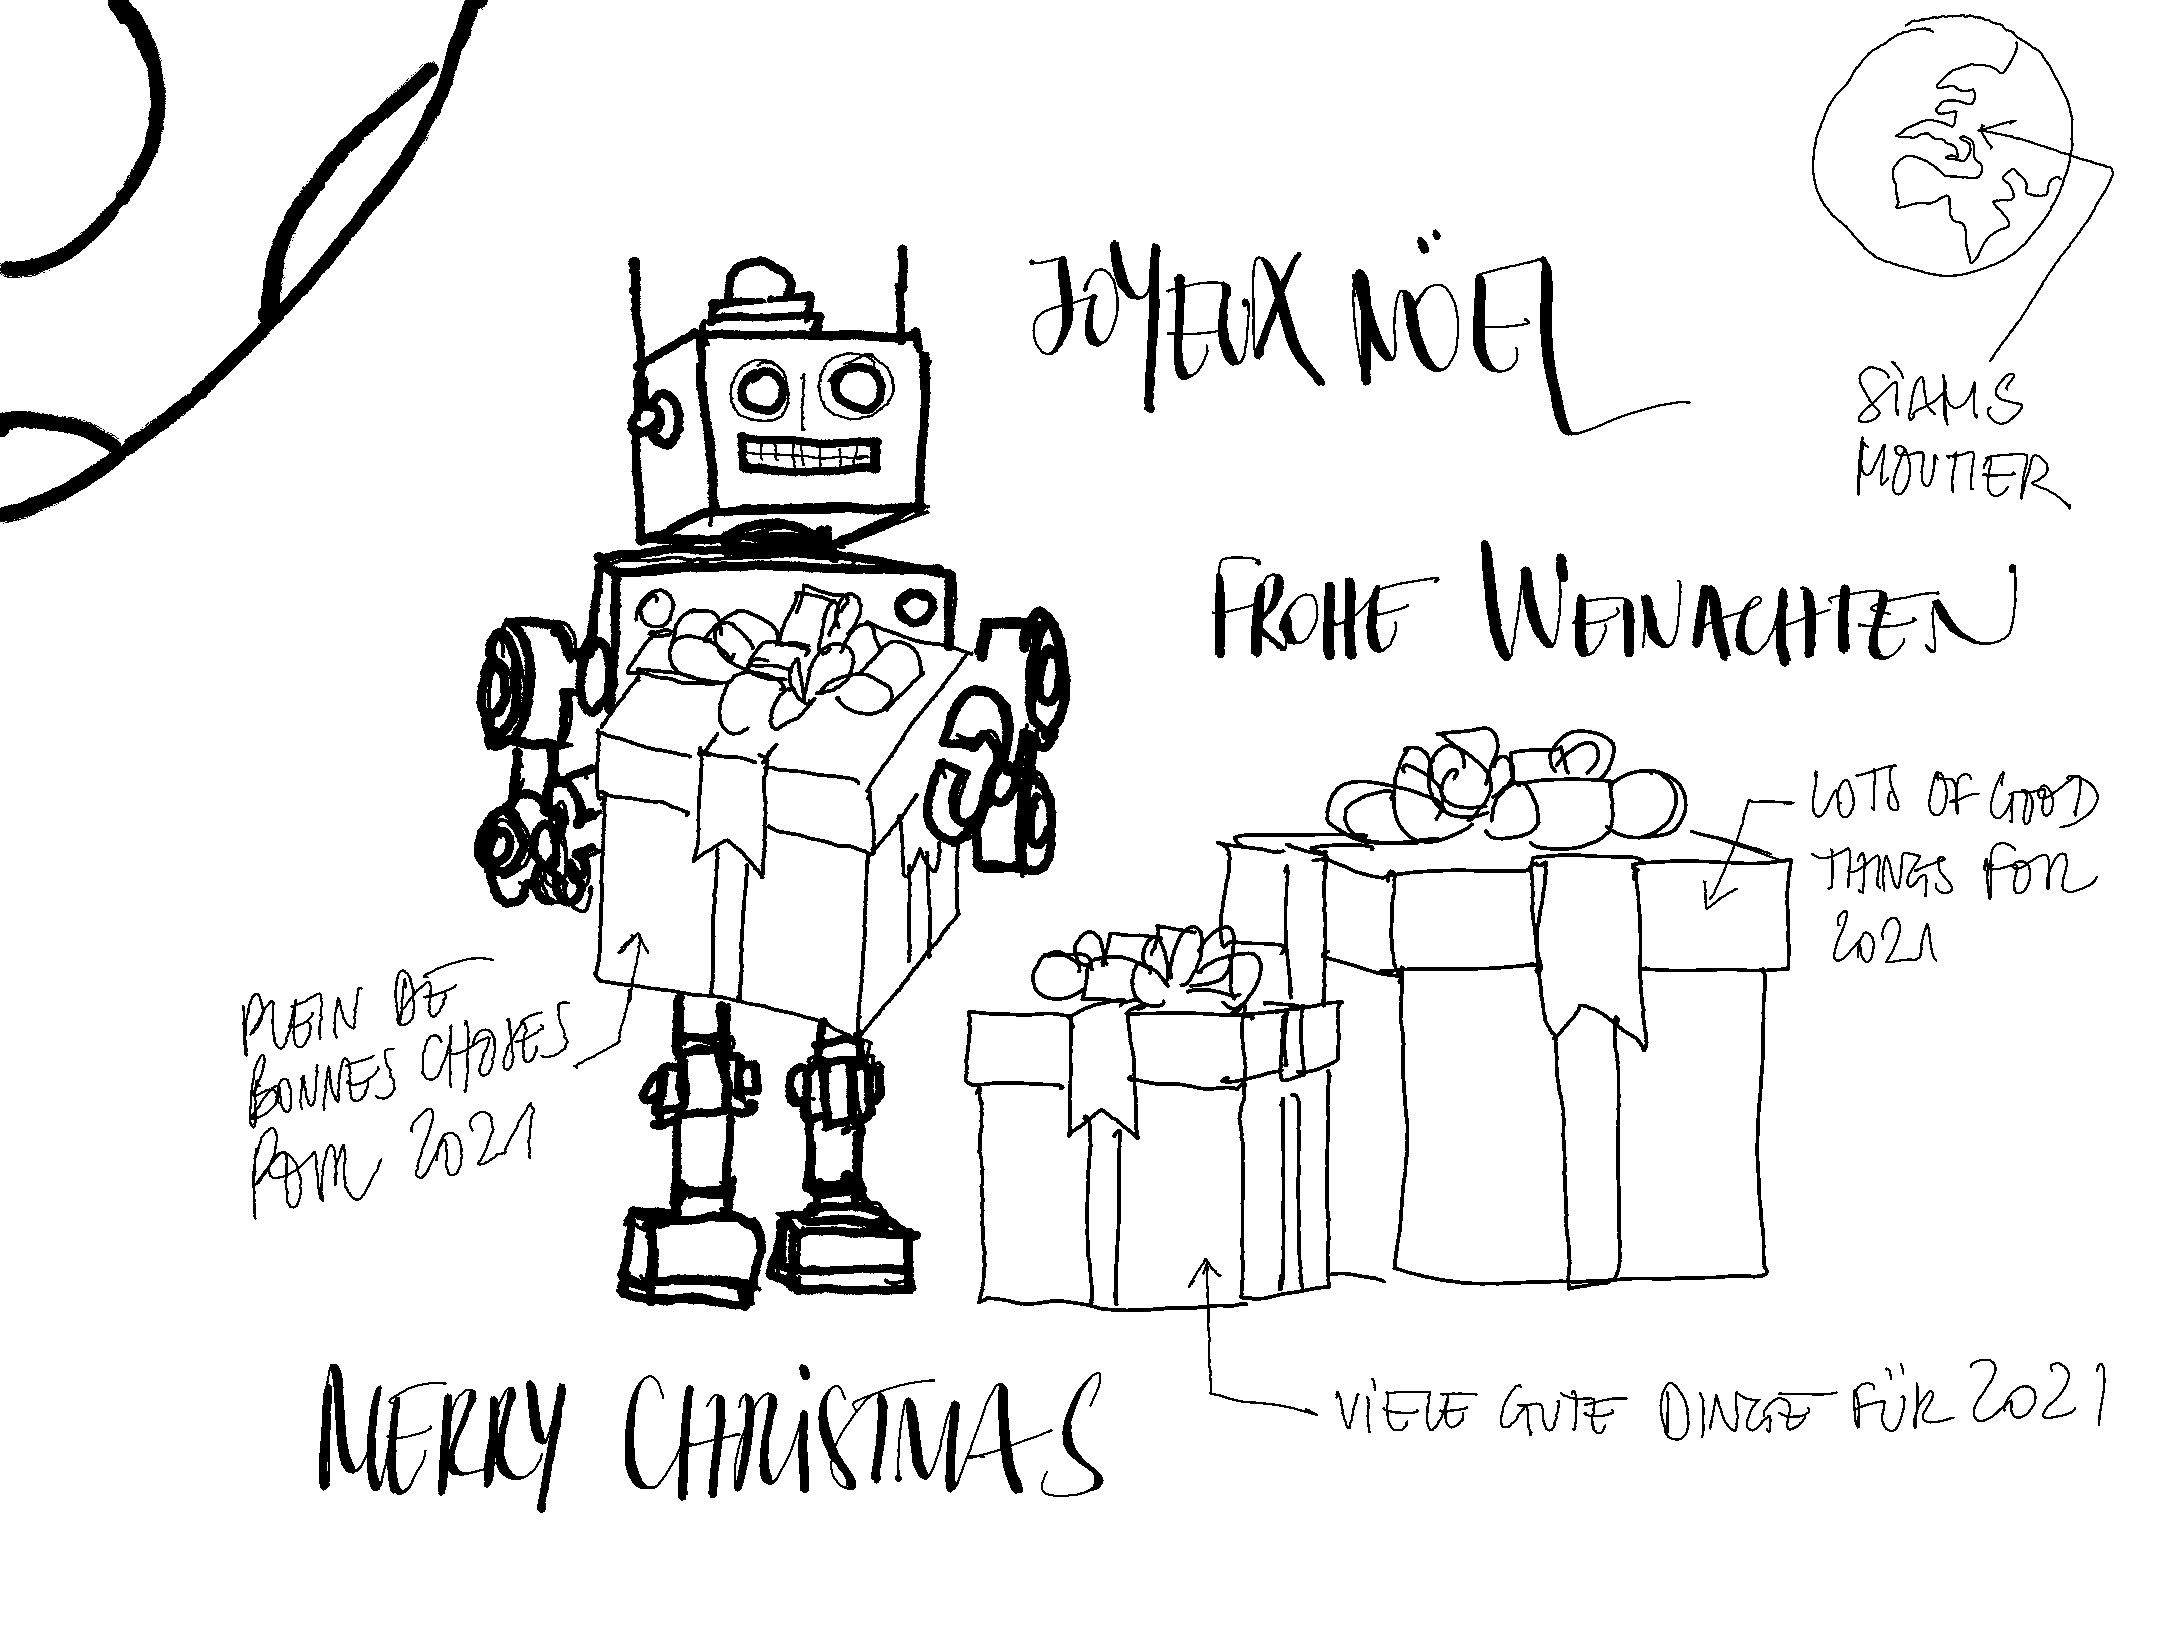 JOYEUX NÖEL
SIAMS
MOUTIER
FROHE WEINACHTEN
LOTS OF GOOD
THINGS FOR
2021
PLEIN DE
BONNES CHOSES
POUR 2021
MERRY CHRISTMAS
VIELE GUTE DINGE FÜR 2021